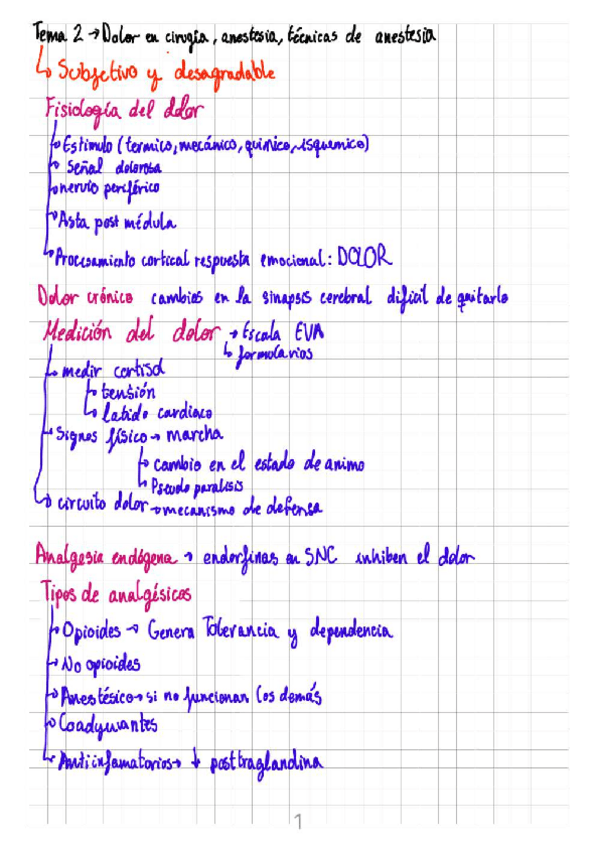 Tema 2 → Dolor en cirugía, anestesia, técnicas de anestesia
↳ Subjetivo y desagradable
Fisiología del dolor
→ Estimulo (termico, mecánico, quimico, isquemico)
→ Señal dolorosa
→ nervio periférico
→ Asta post médula
→ Procesamiento cortical respuesta emocional: DOLOR
Dolor crónico cambios en la sinapsis cerebral dificil de quitarlo
Medición del dolor → Escala EVA
↳ formularios
→ medir cortisol
→ tensión
→ latido cardiaco
→ Signos físico → marcha
→ cambio en el estado de animo
→ Pseudo paralisis
→ circuito dolor → mecanismo de defensa
Analgesia endógena → endorfinas en SNC inhiben el dolor
Tipos de analgésicos
→ Opioides → Genera Tolerancia y dependencia
→ No opioides
→ Anestésico → si no funcionan los demás
→ Coadyuvantes
→ Antiinfamatorios → ↓ posttraglandina
1